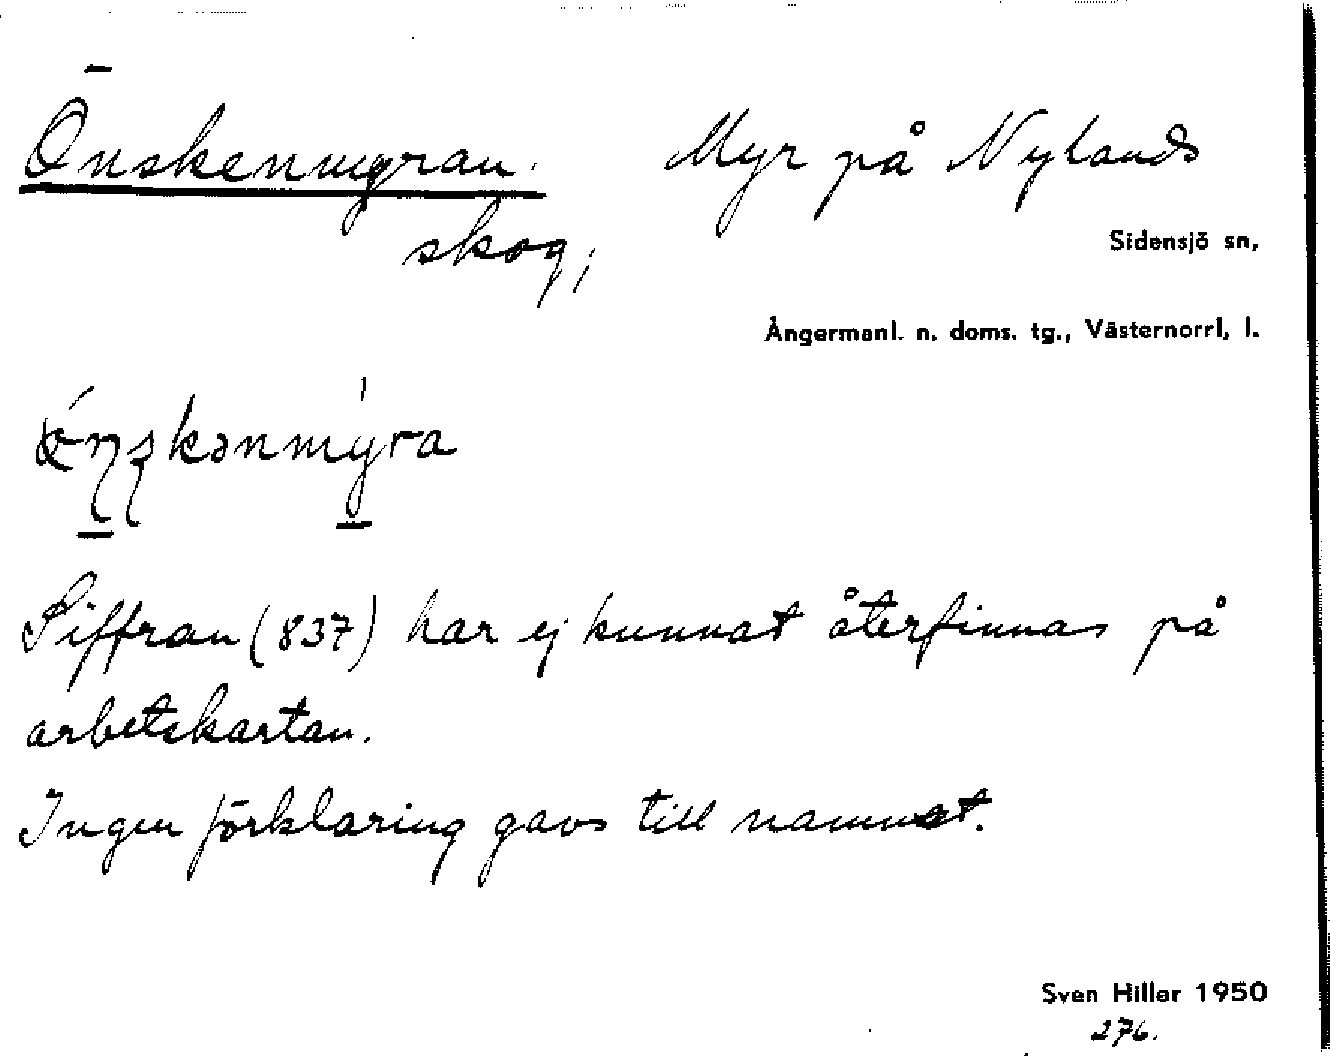 Önskenmyran. Myr på Nylands
skog,
Sidensjö sn,
Ångermanl. n. doms. tg., Västernorrl, l.
Siffran (837) har ej kunnat återfinnas på
arbetskartan.
Ingen förklaring gavs till namnet.
Sven Hillar 1950
276.